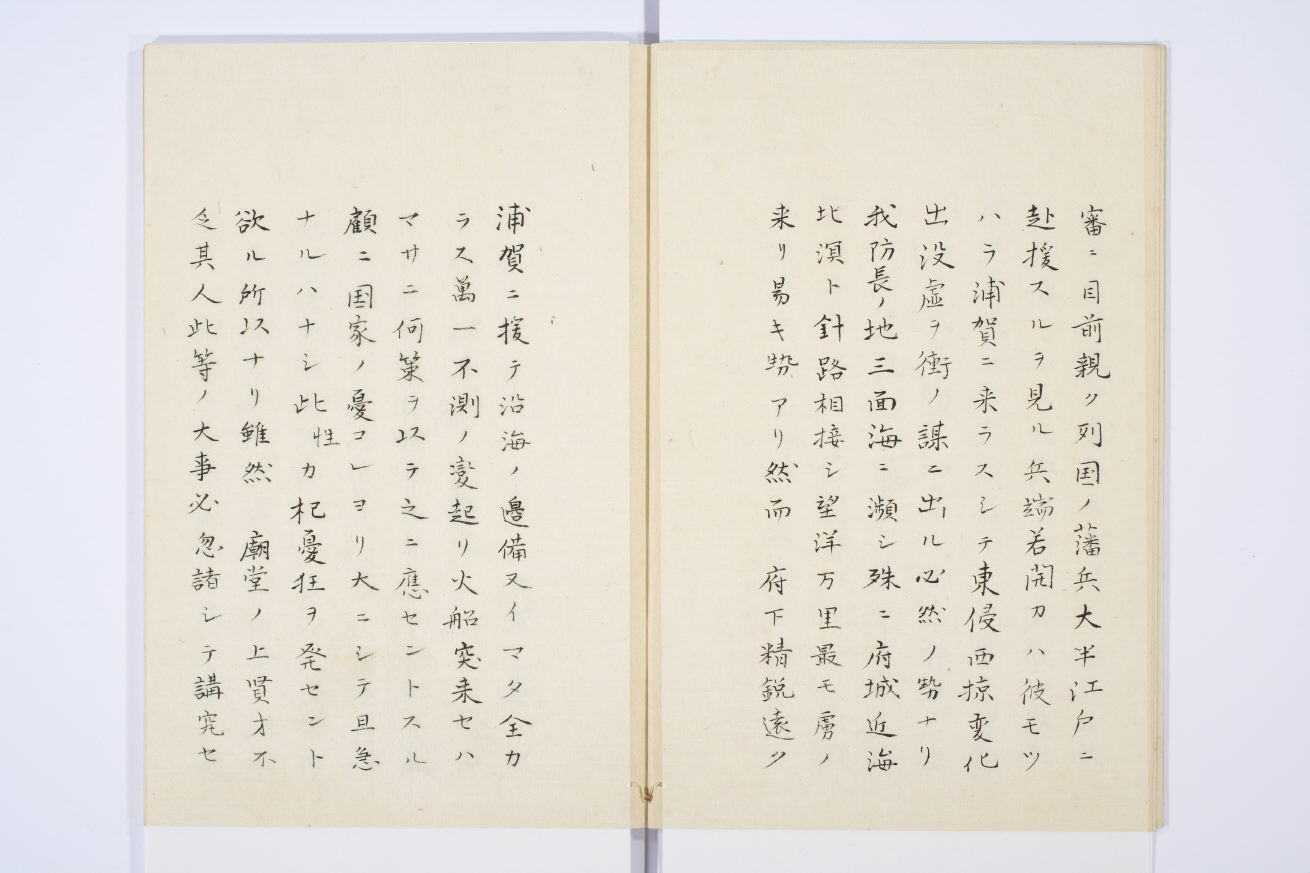 審ニ目前親ク列国ノ藩兵大半江戸ニ
赴援スルヲ見ル兵端若開カハ彼モツ
ハラ浦賀ニ来ラスシテ東侵西掠変化
出没虚ヲ衝ノ謀ニ出ル必然ノ勢ナリ
我防長ノ地三面海ニ瀕シ殊ニ府城近海
北溟ト針路相接シ望洋万里最モ虜ノ
来リ易キ勢アリ然而　府下精鋭遠ク
浦賀ニ援テ沿海ノ邊備又イマタ全カ
ラス萬一不測ノ変起リ火船突来セハ
マサニ何策ヲ以テ之ニ應セントスル
顧ニ国家ノ憂コレヨリ大ニシテ且急
ナルハナシ此性カ杞憂狂ヲ発セント
欲ル所以ナリ雖然　廟堂ノ上賢才不
乏其人此等ノ大事必忽諸シテ講究セ